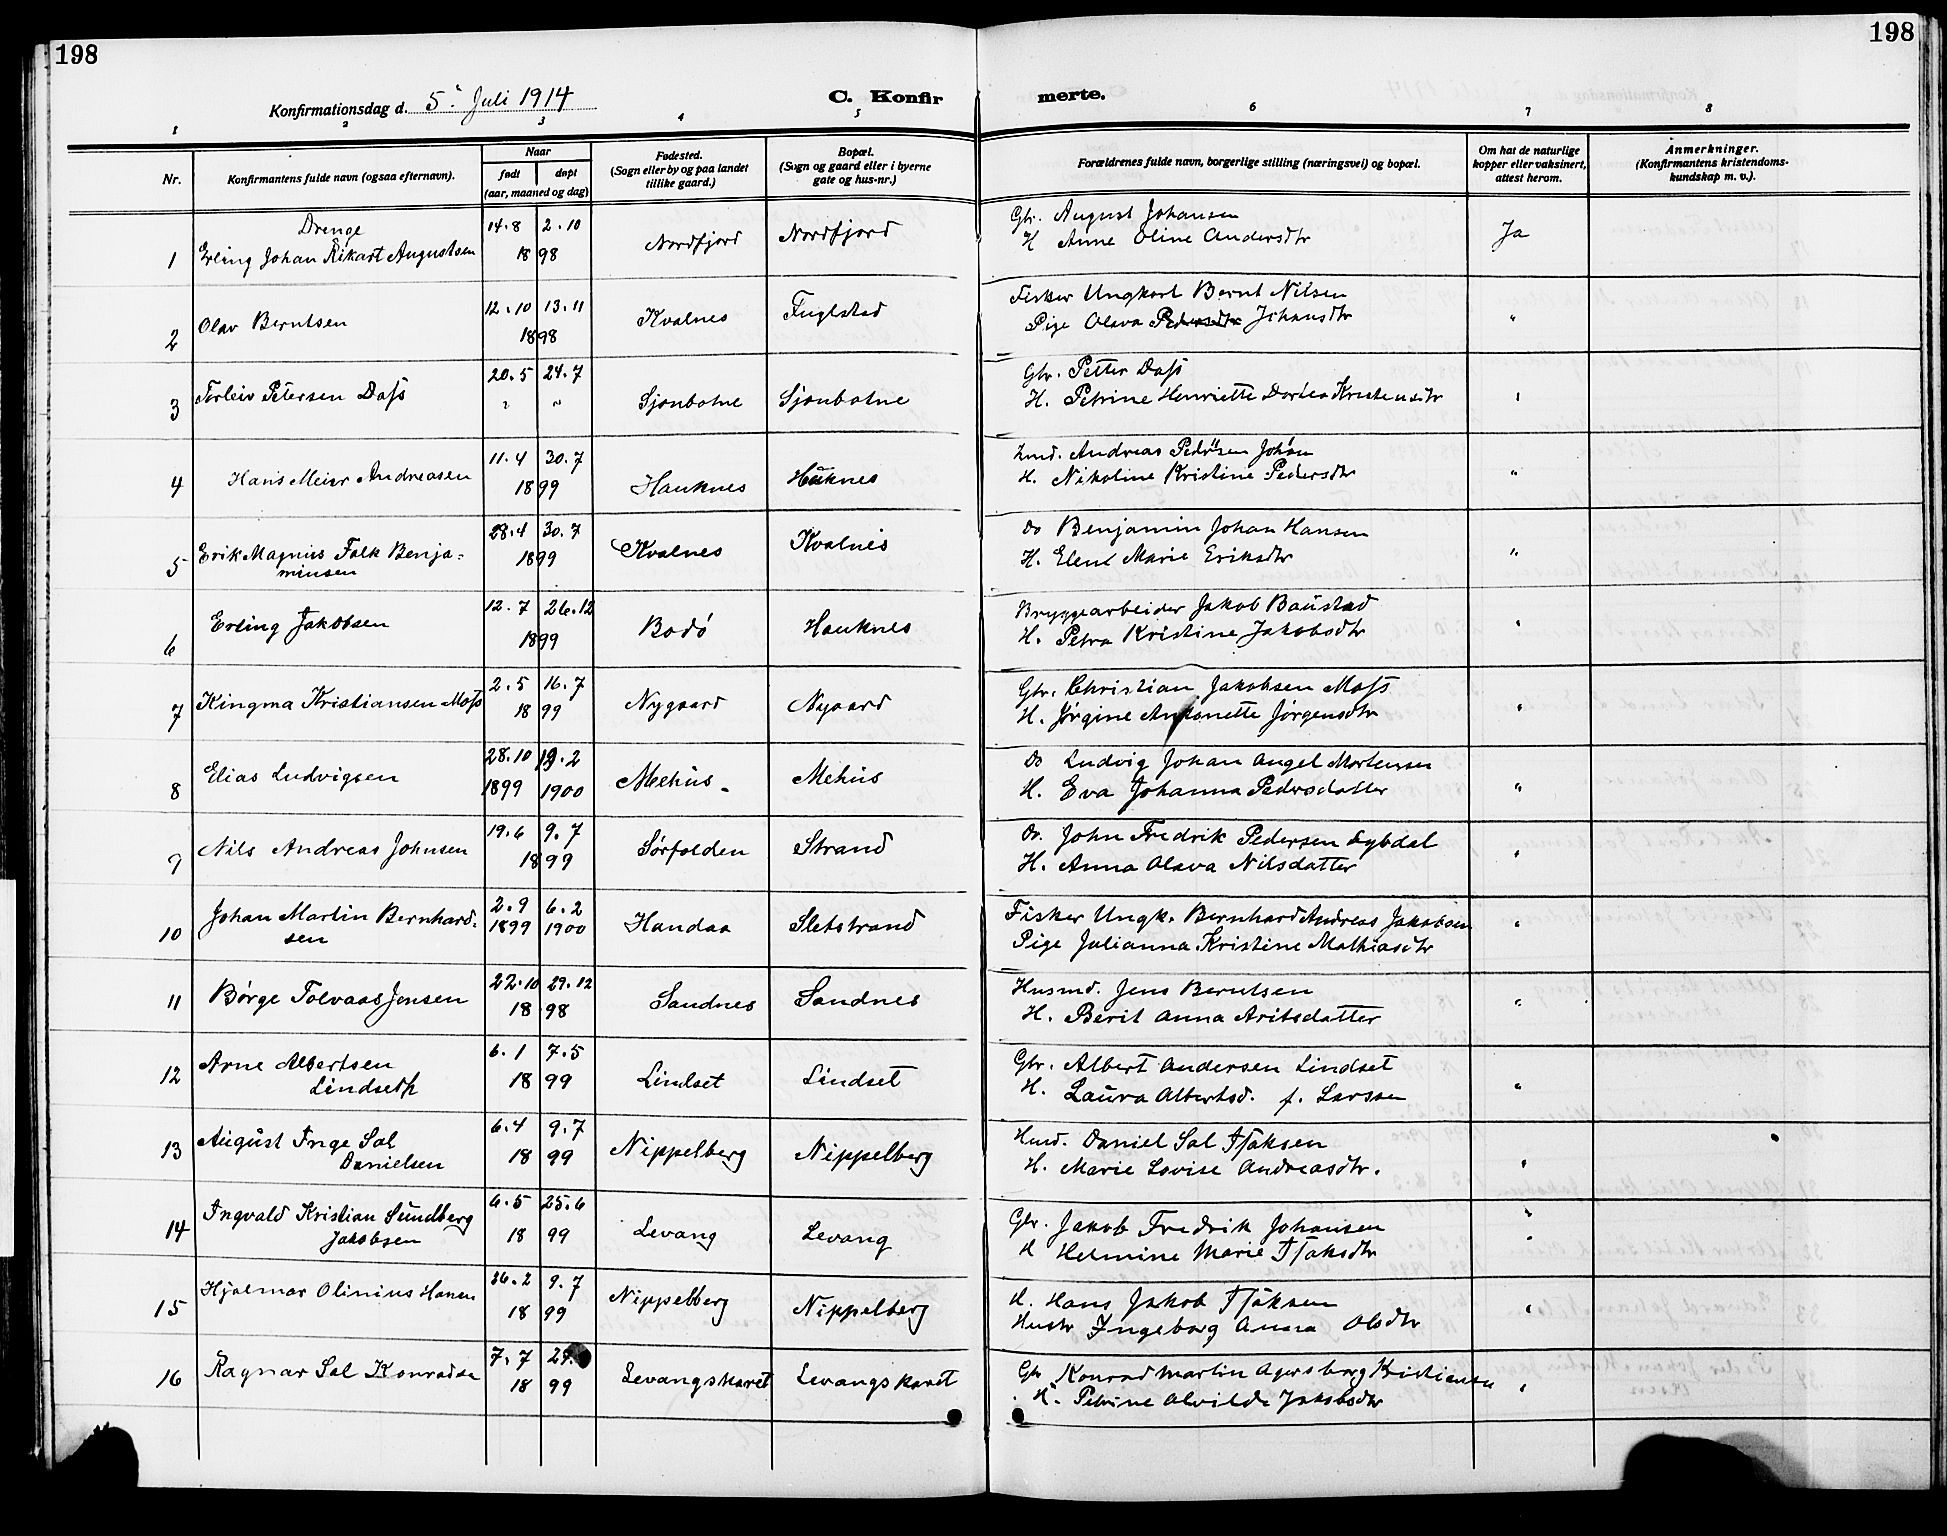 198
198
Konfirmationsdag d. 5. Juli 1914
C. Konfir
merte.
1 2 3 4 5 6 7 8
Nr.
Konfirmantens fulde navn (ogsaa efternavn).
Naar
født
døpt
(aar, maaned og dag)
Fødested.
(Sogn eller by og paa landet
tillike gaard.)
Bopæl.
(Sogn og gaard eller i byerne
gate og hus-nr.)
Forældrenes fulde navn, borgerlige stilling (næringsvei) og bopæl.
Om hat de naturlige
kopper eller vaksinert,
attest herom.
Anmerkninger.
(Konfirmantens kristendoms-
kundskap m. v.).
Drenge 14.8 2.10 Gbr. August Johansen
1 Erling Johan Rikart Augustsen 1898 Nordfjord Nordfjord H Anne Oline Andersdtr Ja
12.10 13.11 Fisker Ungkarl Bernt Nilsen
2 Olav Berntsen 1898 Kvalnes Fuglstad Pige Olava Pedersdtr Johansdtr "
20.5 24.7 Gbr. Petter Dass
3 Torleiv Petersen Dass " " Sjonbotne Sjonbotne H. Petrine Henriette Dortea Kristensdtr "
11.4 30.7 Andreas Johan
4 Hans Meier Andreasen 1899 Hauknes Hauknes H. Nikoline Kristine Pedersdtr "
28.4 30.7 do Benjamin Johan Hansen
5 Erik Magnus Falk Benja=
minsen 1899 Kvalnes Kvalnes H. Elene Marie Eriksdtr "
12.7 26.12 Bryggearbeider Jakob Baustad
6 Erling Jakobsen 1899 Bodö Hauknes H. Petra Kristine Jakobsdtr "
2.5 16.7 Gbr. Christian Jakobsen Moss
7 Kingma Kristiansen Moss 1899 Nygaard Nygaard H. Jörgine Antonette Jörgensdtr "
28.10 2 do Ludvig Johan Angel Mortensen
8 Elias Ludvigsen 1899 1900 Mehus Mehus H. Eva Johanna Pedersdatter "
19.6 9.7 do. John Fredrik Pedersen Dybdal
9 Nils Andreas Johnsen 1899 Sørfolden Strand H. Anna Olava Nilsdatter "
2.9 6.2 Fisker Ungk. Bernhard Andreas Jakobsen
10 Johan Martin Bernhard-
sen 1899 1900 Handaa Sletstrand Pige Julianna Kristine Mathiasdtr "
22.10 29.12 Husmd. Jens Berntsen
11 Börge Tolvaas Jensen 1898 Sandnes Sandnes H. Berit Anna Aritsdatter "
6.1 7.5 Gbr. Albert Andersen Lindset
12 Arne Albertsen
Lindseth 1899 Lindset Lindset H. Laura Albertsd. f. Larssen "
6.4 9.7 Husd. Daniel Sal Isaksen
13 August Inge Sal
Danielsen 1899 Nippelberg Nippelberg H. Marie Lovise Andreasdtr. "
6.5 25.6 Gbr. Jakob Fredrik Johansen
14 Ingvald Kristian Sundberg
Jakobsen 1899 Levang Levang H Helmine Marie Isaksdtr "
26.2 9.7 H. Hans Jakob Isaksen
15 Hjalmar Olinius Hansen 1899 Nippelberg Nippelberg Hustr Ingeborg Anna Olsdtr "
7.7 Gbr Konrad Martin Agersborg Kristiansen
16 Ragnar Sal Konradsen 1899 Levangskaret Levangskaret H. Petrine Alvilde Jakobsdtr "